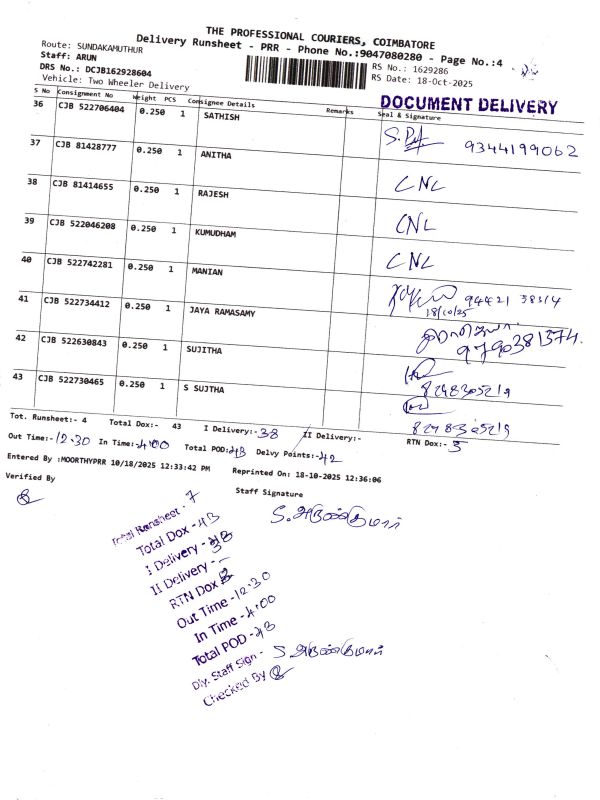 THE PROFESSIONAL COURIERS, COIMBATORE
Delivery Runsheet - PRR - Phone No.:9047080280 - Page No.:4
Route: SUNDAKAMUTHUR
Staff: ARUN
DRS No.: DCJB162928604
Vehicle: Two Wheeler Delivery
RS No.: 1629286
RS Date: 18-Oct-2025
DOCUMENT DELIVERY
S No Consignment No Weight PCS Consignee Details Remarks Seal & Signature
36 CJB 522706404 0.250 1 SATHISH 9344199062
37 CJB 81428777 0.250 1 ANITHA CNL
38 CJB 81414655 0.250 1 RAJESH CNL
39 CJB 522046208 0.250 1 KUMUDHAM CNL
40 CJB 522742281 0.250 1 MANIAN 94421 38314
18/10/25
41 CJB 522734412 0.250 1 JAYA RAMASAMY 9790381374.
42 CJB 522630843 0.250 1 SUJITHA 8248305219
43 CJB 522730465 0.250 1 S SUJTHA 8248305219
Tot. Runsheet:- 4 Total Dox:- 43 I Delivery:-38 II Delivery:- RTN Dox:-5
Out Time:-12.30 In Time:-4.00 Total POD:-43 Delvy Points:-42
Entered By :MOORTHYPRR 10/18/2025 12:33:42 PM Reprinted On: 18-10-2025 12:36:06
Verified By
Staff Signature
S. அருண்குமார்
Total Runsheet - 7
Total Dox - 43
I Delivery - 38
II Delivery - -
RTN Dox
Out Time -12.30
In Time -4.00
Total POD -43
Dly. Staff Sign - S. அருண்குமார்
Checked By